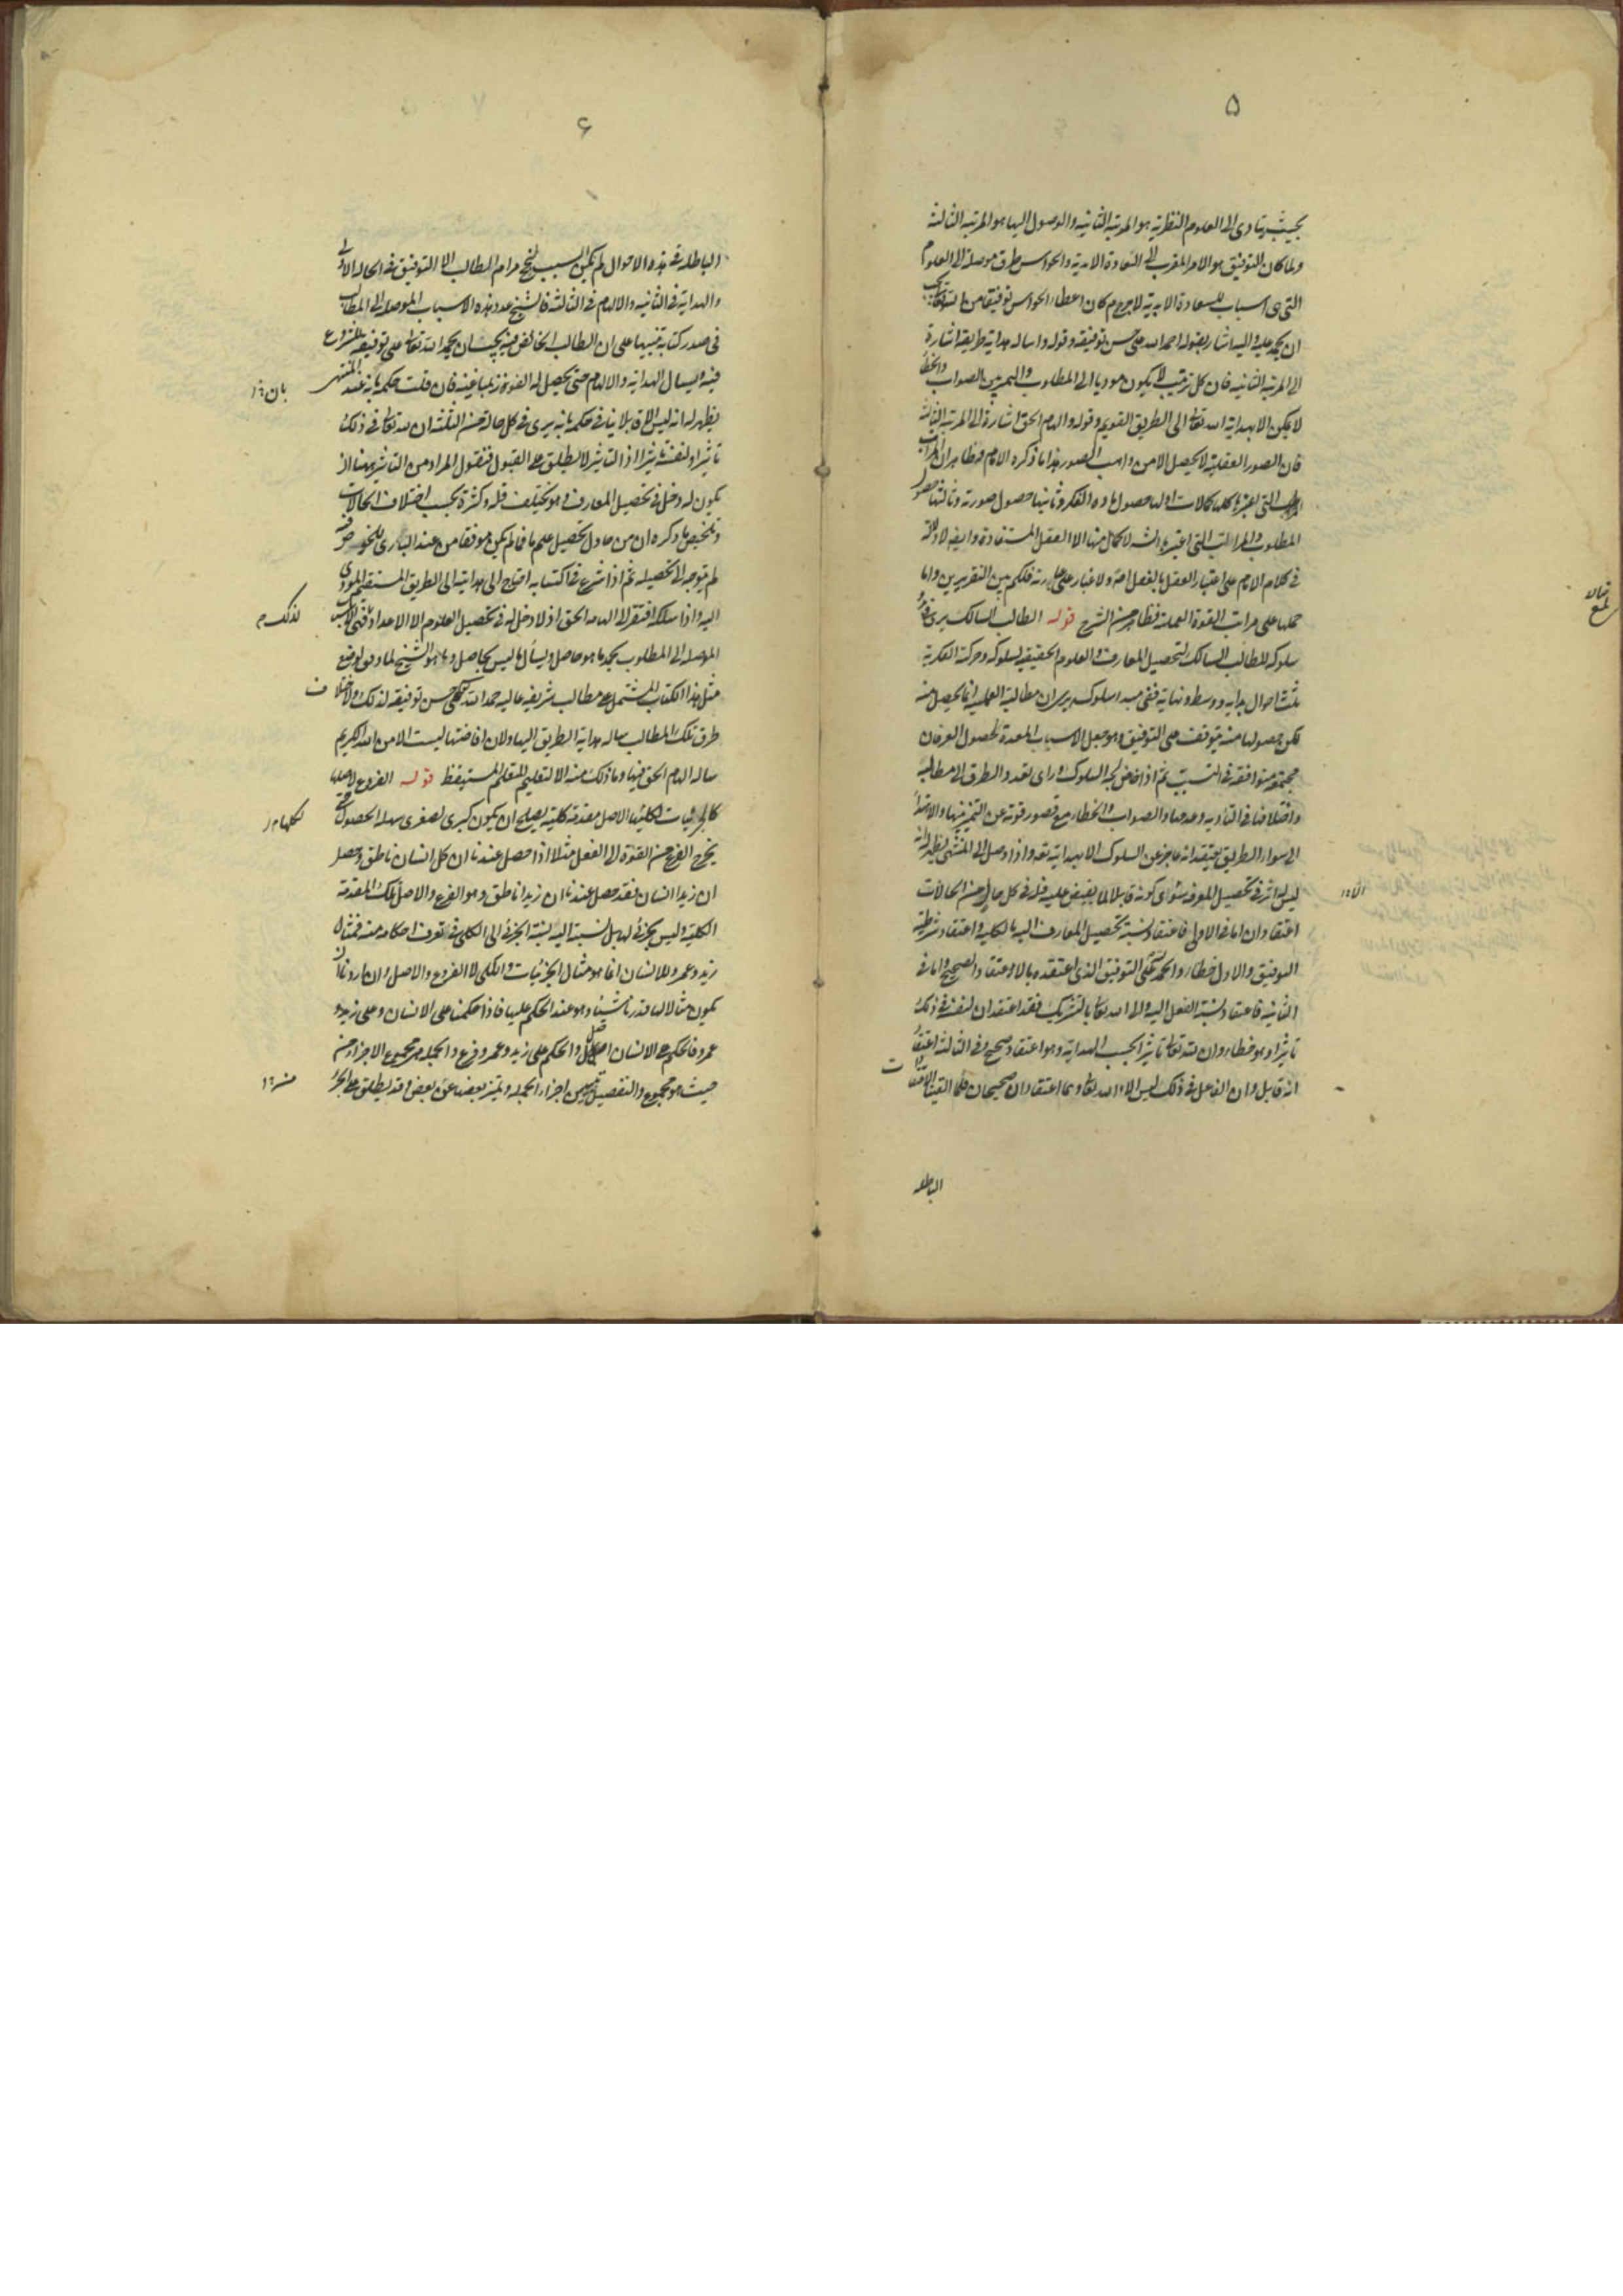 ۵
بحيث يتادى الى العلوم النظرية هو المرتبة الثانية والوصول اليها هو المرتبة الثالثة
ولما كان التوفيق هو الامر المقرب الى السعادة الابدية والحواس طرق موصلة الى العلوم
التى هى اسباب للسعادة الابدية لاجرم كان اعطاء الحواس توفيقا من الله تعالى
ان يحمد عليه واليه اشار بقوله احمد الله على حسن توفيقه وقوله واساله هداية طريقه اشارة
الى المرتبة الثانية فان كل ترتيب لا يكون موديا الى المطلوب والتميز بين الصواب والخطا
لا يمكن الا بهداية الله تعالى الى الطريق القويم وقوله والهام الحق اشارة الى المرتبة الثالثة
فان الصور العقلية لا تحصل الا من واهب الصور هذا ما ذكره الامام وظاهر ان المراتب
التى اعتبرها كلها كمالات اولها حصول مادة الفكر وثانيها حصول صورته وثالثها حصول
المطلوب والمراتب التى اعتبرها الش لا كمال منها الا العقل المستفاد وايضا لا دلالة
فى كلام الامام على اعتبار العقل بالفعل اصلا ولا غبار على عبارته فلكم بين التقريرين واما
حملها على مراتب القوة العملية فظاهر من الشرح قوله الطالب السالك يرى فى
سلوكه للطالب السالك لتحصيل المعارف والعلوم الحقيقية لسلوكه وحركته الفكرية
ثلث احوال بداية ووسط ونهاية ففى مبدا سلوكه يرى ان مطالبه العلمية انما يحصل منه
لكن حصولها منه يتوقف على التوفيق وهو جعل الاسباب المعدة لحصول العرفان
مجتمعة متوافقة فى التسبيب ثم اذا خاض لجة السلوك وراى تعدد الطرق الى مطالبه
واختلافها فى التادية وعدمها والصواب والخطاء مع قصور قوته عن التميز بينها والاهتداء
الى سواء الطريق تيقن انه عاجز عن السلوك الا بهدايته تعالى واذا وصل الى المنتهى يظهر انه
ليس له اثر فى تحصيل المعرفة سوى كونه قابلا لما يفيض عليه فله فى كل حال من الحالات
اعتقادان اما فى الاولى فاعتقاد نسبة تحصيل المعارف اليه بالكلية واعتقاد شرطية
التوفيق والاول خطاء والحمد على التوفيق الذى اعتقده بالاعتقاد الصحيح واما فى
الثانية فاعتقاد نسبة الفعل اليه والى الله تعالى بالتشريك فقد اعتقد ان لنفسه فى ذلك
تاثيرا وهو خطاء وان لله تعالى تاثيرا بحسب الهداية وهو اعتقاد صحيح وفى الثالثة اعتقد
انه قابل وان الفاعل فى ذلك ليس الا الله تعالى وهما اعتقادان صحيحان فلما القينا الاعتقادات
الباطلة
۶
الباطلة فى هذه الاحوال لم يكن السبب لنجح مرام الطالب الا التوفيق فى الحالة الاولى
والهداية فى الثانية والالهام فى الثالثة فالشيخ عدد هذه الاسباب الموصلة الى المطالب
فى صدر كتابه تنبيها على ان الطالب الخائض فيه يجب ان يحمد الله تعالى على توفيقه للشروع
فيه ويسال الهداية والالهام حتى يحصل له الفوز بمباغيه فان قلت حكمه بانه عند المنتهى
يظهر له انه ليس الا قابلا ينافى حكمه بانه يرى فى كل حالة من الثلثة ان لله تعالى فى ذلك
تاثيرا ولنفسه تاثيرا اذ التاثير لا يطلق على القبول فنقول المراد من التاثير ههنا ان
يكون له دخل فى تحصيل المعارف وهو يختلف قلة وكثرة بحسب اختلاف الحالات
وتلخيص ما ذكره ان من حاول تحصيل علم ما فما لم يكن موفقا من عند البارى للخوض فيه
لم يتوجه الى تحصيله ثم اذا شرع فى اكتسابه احتاج الى هداية الى الطريق المستقيم المودى
اليه واذا سلكه افتقر الى الهام الحق اذ لا دخل له فى تحصيل العلوم الا الاعداد
الموصلة الى المطلوب يحمد ما هو حاصل ويسال ما ليس بحاصل وما هو الشيخ لما وفق لوضع
مثل هذا الكتاب المشتمل على مطالب شريفة عالية حمد الله تعالى على حسن توفيقه لذلك ولاختلاف
طرق تلك المطالب ساله هداية الطريق اليها ولان افاضتها ليست الا من الله الكريم
ساله الهام الحق فيها وما ذلك منه الا لتعليم المتعلم المستيقظ قوله الفروع لاصلها
كالجزئيات لكليها الاصل مقدمة كلية يصلح ان يكون كبرى لصغرى سهلة الحصول حتى
يخرج الفرع من القوة الى الفعل مثلا اذا حصل عندنا ان كل انسان ناطق وحصل
ان زيدا انسان فقد حصل عندنا ان زيدا ناطق وهو الفرع والاصل تلك المقدمة
الكلية وليس بجزئى لها بل نسبته اليه نسبة الجزئى الى الكلى فى تعرف احكامه منه فمثال
زيد وعمرو للانسان انما هو مثال الجزئيات والكلى لا الفروع والاصل وان اردنا ان
يكون مثالا لها قدرنا شيئا وهو عند الحكم عليها فاذا حكمنا على الانسان وعلى زيد و
عمرو فالحكم على الانسان اصل والحكم على زيد وعمرو فرع والجملة هى مجموع الاجزاء من
حيث هو مجموع والتفصيل تعيين اجزاء الجملة وتميز بعضها عن بعض وقد يطلق على الجزء
بان
لذلك
لكليها